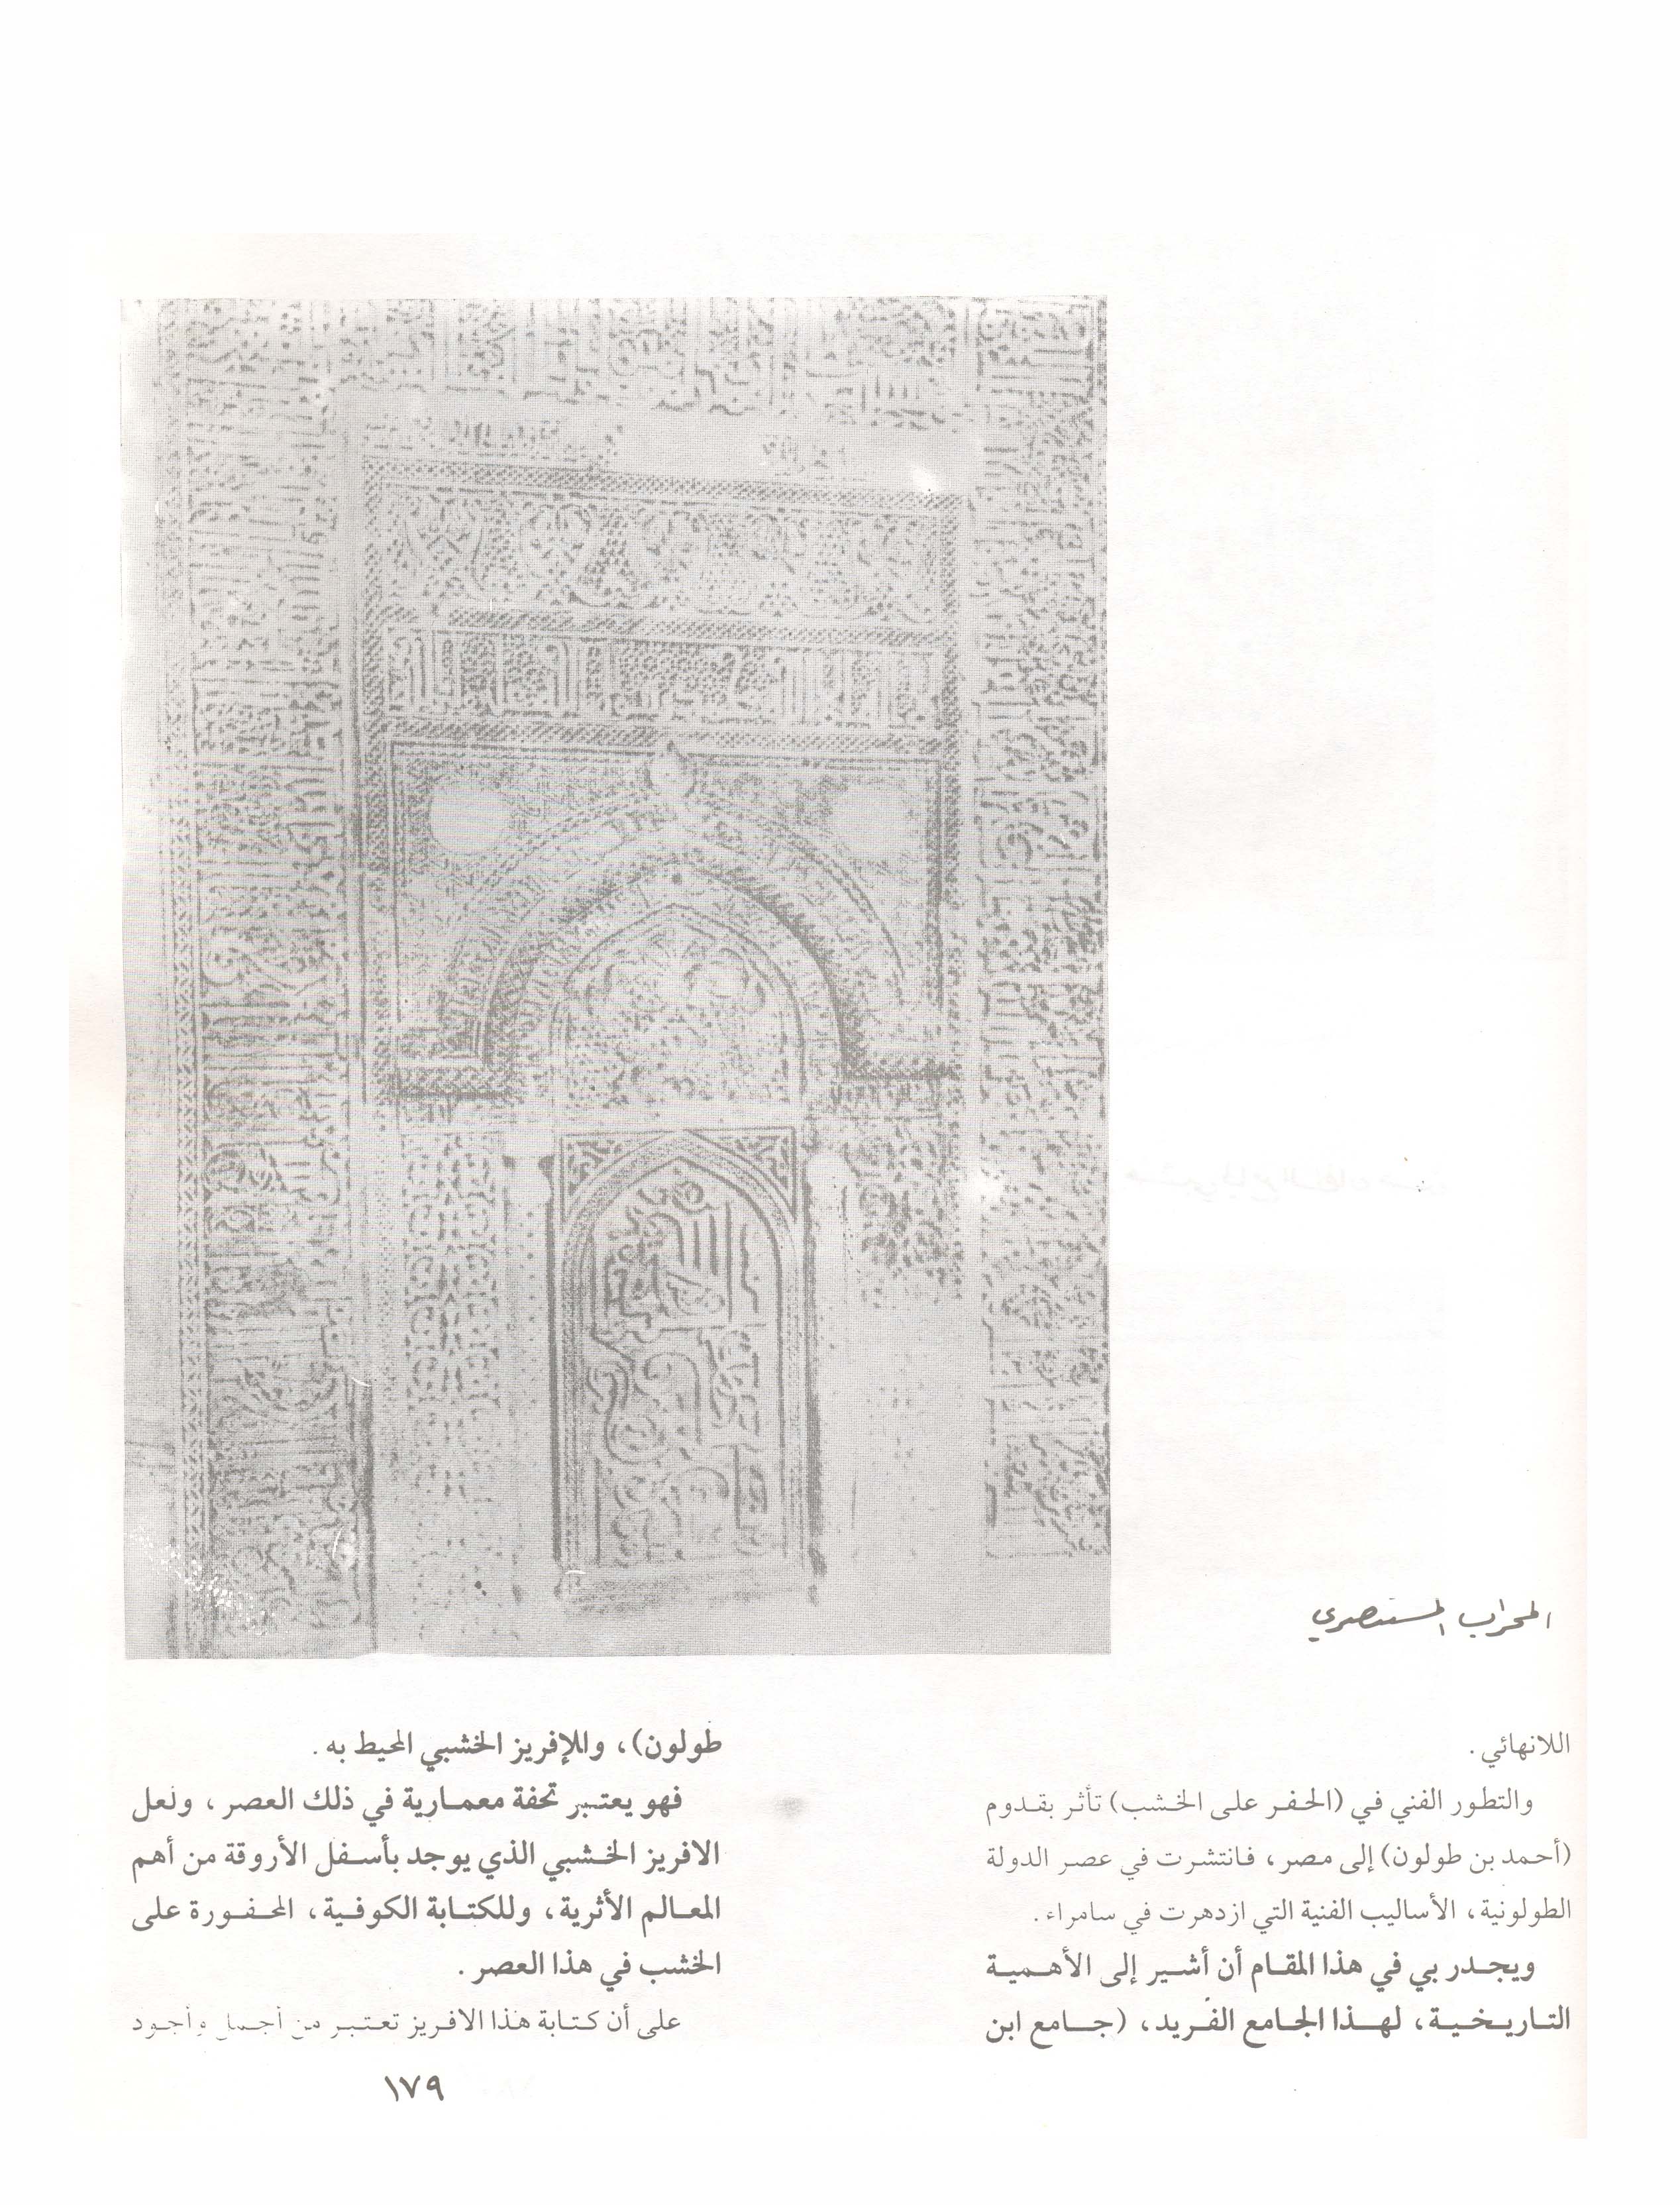 المحراب المستنصري
اللانهائي .
والتطور الفني في (الحفر على الخشب) تأثر بقدوم
(أحمد بن طولون) إلى مصر، فانتشرت في عصر الدولة
الطولونية، الأساليب الفنية التي ازدهرت في سامراء.
ويجدر بي في هذا المقام أن أشير إلى الأهمية
التاريخية، لهذا الجامع الفريد، (جامع ابن
طولون)، وللإفريز الخشبي المحيط به .
فهو يعتبر تحفة معمارية في ذلك العصر، ولعل
الافريز الخشبي الذي يوجد بأسفل الأروقة من أهم
المعالم الأثرية، وللكتابة الكوفية، المحفورة على
الخشب في هذا العصر .
على أن كتابة هذا الافريز تعتبر من أجمل وأجود
١٧٩